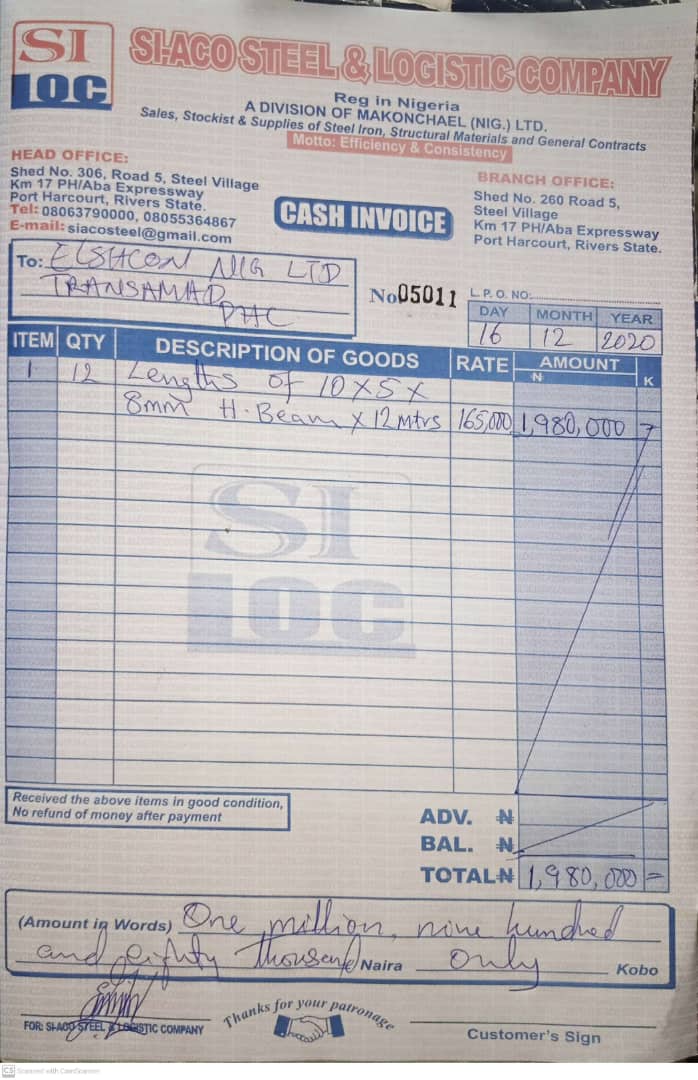 SI
LOC
SI-ACO STEEL & LOGISTIC COMPANY
Reg in Nigeria
A DIVISION OF MAKONCHAEL (NIG.) LTD.
Sales, Stockist & Supplies of Steel Iron, Structural Materials and General Contracts
Motto: Efficiency & Consistency
HEAD OFFICE:
Shed No. 306, Road 5, Steel Village
Km 17 PH/Aba Expressway
Port Harcourt, Rivers State.
Tel: 08063790000, 08055364867
E-mail: siacosteel@gmail.com
CASH INVOICE
BRANCH OFFICE:
Shed No. 260 Road 5,
Steel Village
Km 17 PH/Aba Expressway
Port Harcourt, Rivers State.
To: ELSHCON NIG LTD
TRANSAMAD
PHC
No 05011
L.P.O. NO:
DAY MONTH YEAR
16 12 2020
ITEM QTY DESCRIPTION OF GOODS RATE AMOUNT
₦ K
1 12 Lengths of 10x5x
8mm H.Beam x 12mtrs 165,000 1,980,000
SI
LOC
Received the above items in good condition,
No refund of money after payment
ADV. ₦
BAL. ₦
TOTAL ₦ 1,980,000 =
(Amount in Words) One million, nine hundred
and eighty thousand Naira only Kobo
FOR: SI-ACO STEEL & LOGISTIC COMPANY
Thanks for your patronage
Customer's Sign
CS Scanned with CamScanner